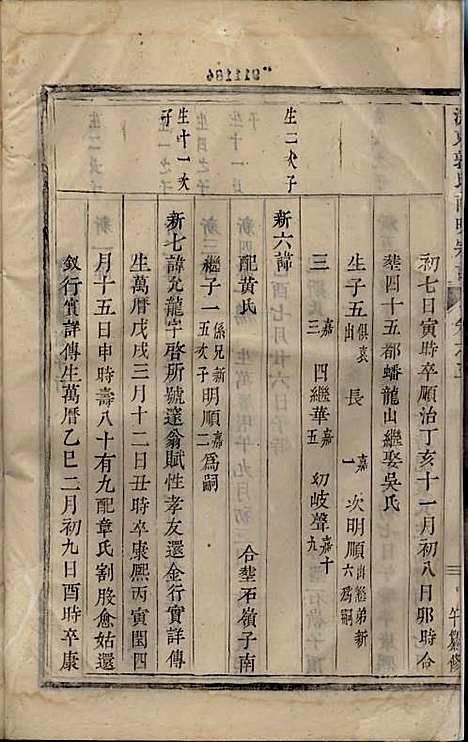 初七日寅時卒順治丁亥十一月初八日卯時合
塟四十五都蟠龍山繼娶吳氏
生子五俱袁出 長嘉一 次明順出繼弟新六爲嗣
三嘉三 四繼華嘉五 幼岐聲嘉十九
生二次子
新六諱
配黃氏 合塟石嶺子南
繼子一係兄新五次子明順嘉二爲嗣
生十一次子
新七諱允龍字啓所號邃翁賦性孝友還金行實詳傳
生萬曆戊戌三月十二日丑時卒康熙丙寅閏四
月十五日申時壽八十有九配章氏割股愈姑還
釵行實詳傳生萬曆乙巳二月初九日酉時卒康